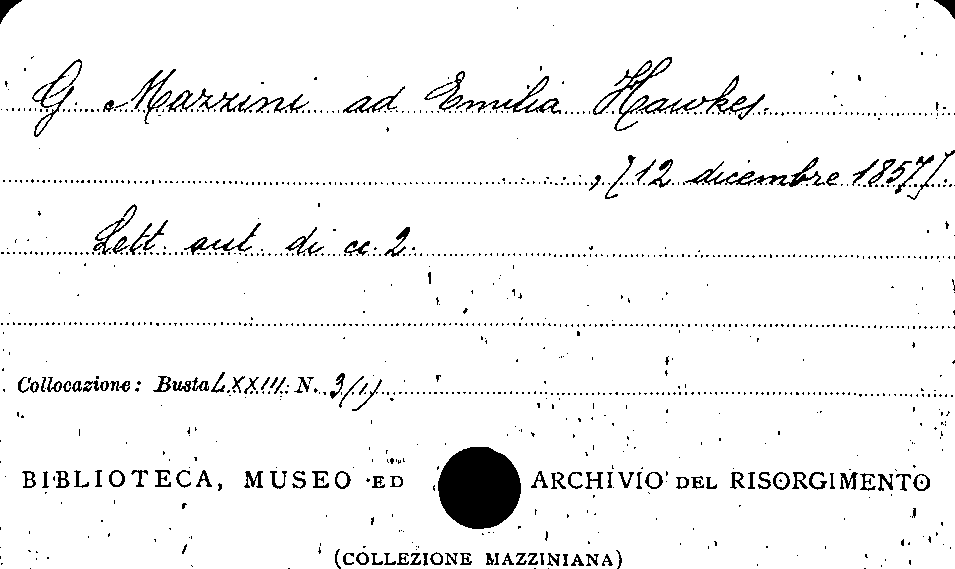 G. Mazzini ad Emilia Hawkes.
, [12 dicembre 1857].
Lett. aut. di cc. 2.
Collocazione: Busta LXXIII. N. 3(1)
BIBLIOTECA, MUSEO ED ARCHIVIO DEL RISORGIMENTO
(COLLEZIONE MAZZINIANA)